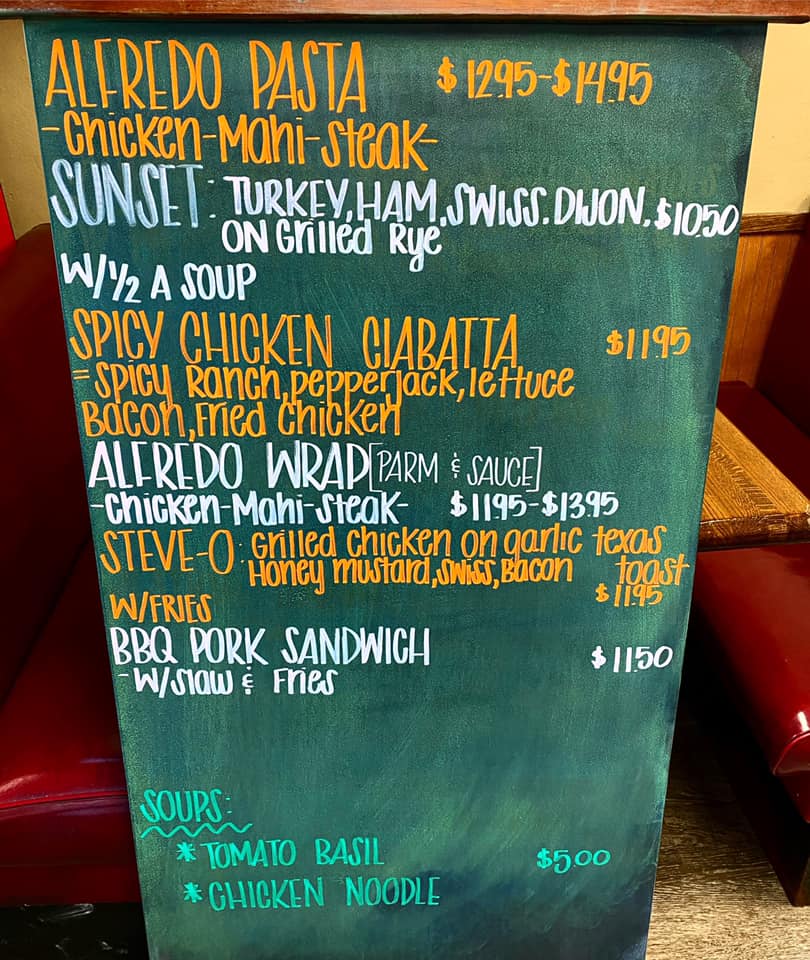 ALFREDO PASTA $12.95-$14.95
-Chicken-Mahi-Steak-
SUNSET: TURKEY, HAM, SWISS. DIJON. $10.50
ON Grilled Rye
W/ 1/2 A SOUP
SPICY CHICKEN CIABATTA $11.95
=Spicy Ranch, pepperjack, lettuce
Bacon, Fried Chicken
ALFREDO WRAP [PARM & SAUCE]
-Chicken-Mahi-Steak- $11.95-$13.95
STEVE-O: Grilled Chicken on garlic texas
Honey mustard, Swiss, Bacon toast
W/FRIES $11.95
BBQ PORK SANDWICH $11.50
-W/Slaw & Fries
SOUPS:
* TOMATO BASIL $5.00
* CHICKEN NOODLE